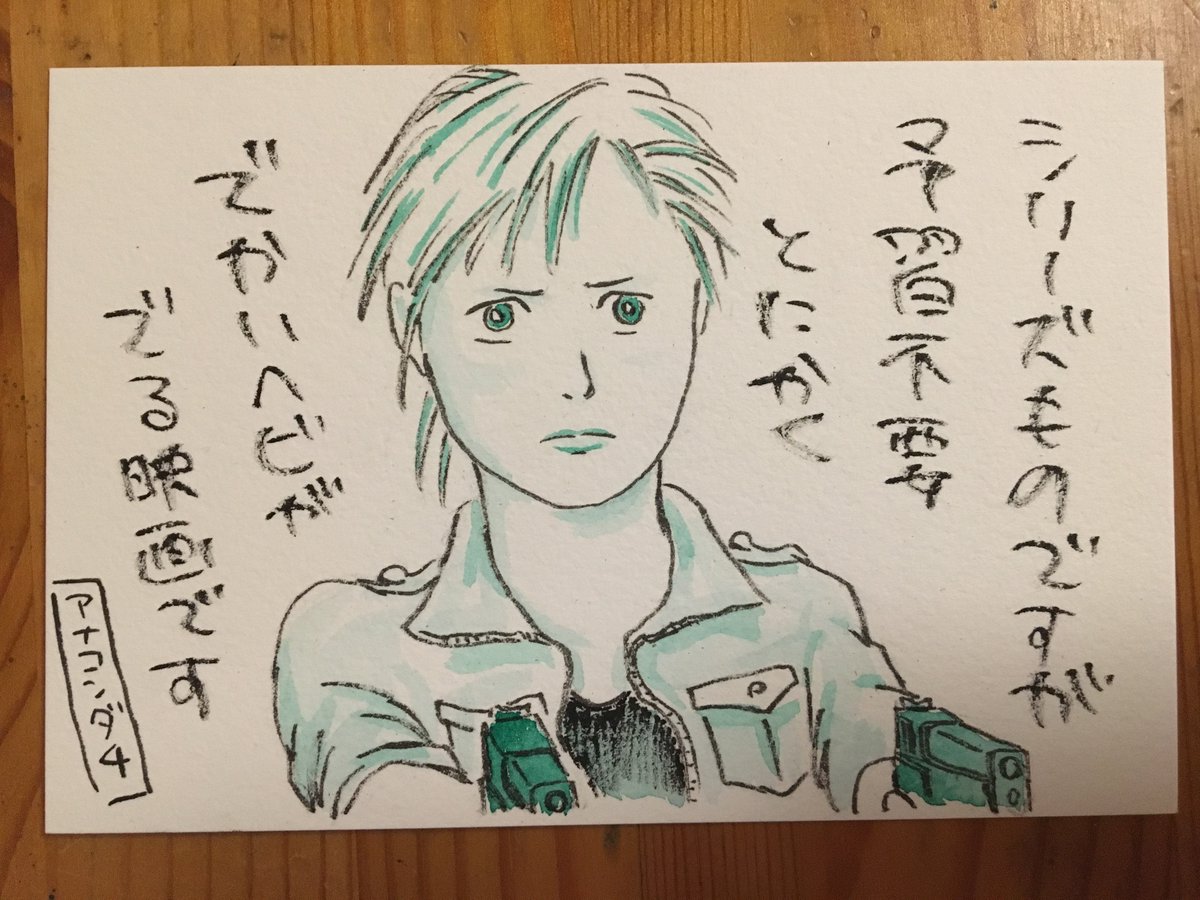 シリーズものですが
予習不要
とにかく
でかいヘビが
でる映画です
アナコンダ4